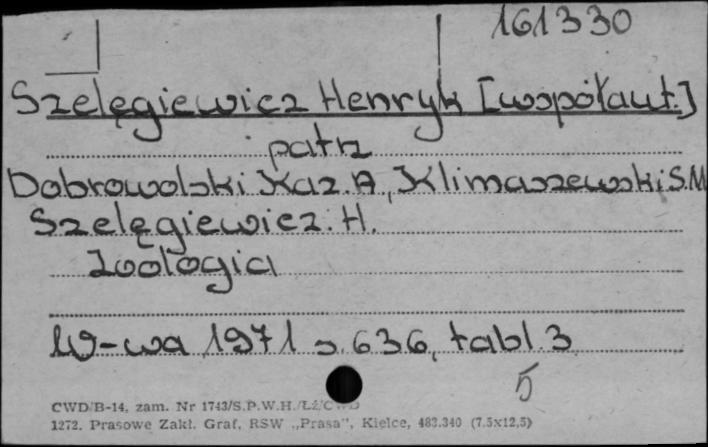 161330
Szelęgiewicz Henryk [współaut.]
patrz
Dobrowolski Kaz. A., Klimaszewski S.M
Szelęgiewicz. H.
Zoologia
W-wa 1971 s. 636, tabl. 3
5
CWD/B-14, zam. Nr 1743/S.P.W.H./Łź/CWD
1272. Prasowe Zakł. Graf. RSW „Prasa", Kielce, 483.340 (7.5x12,5)